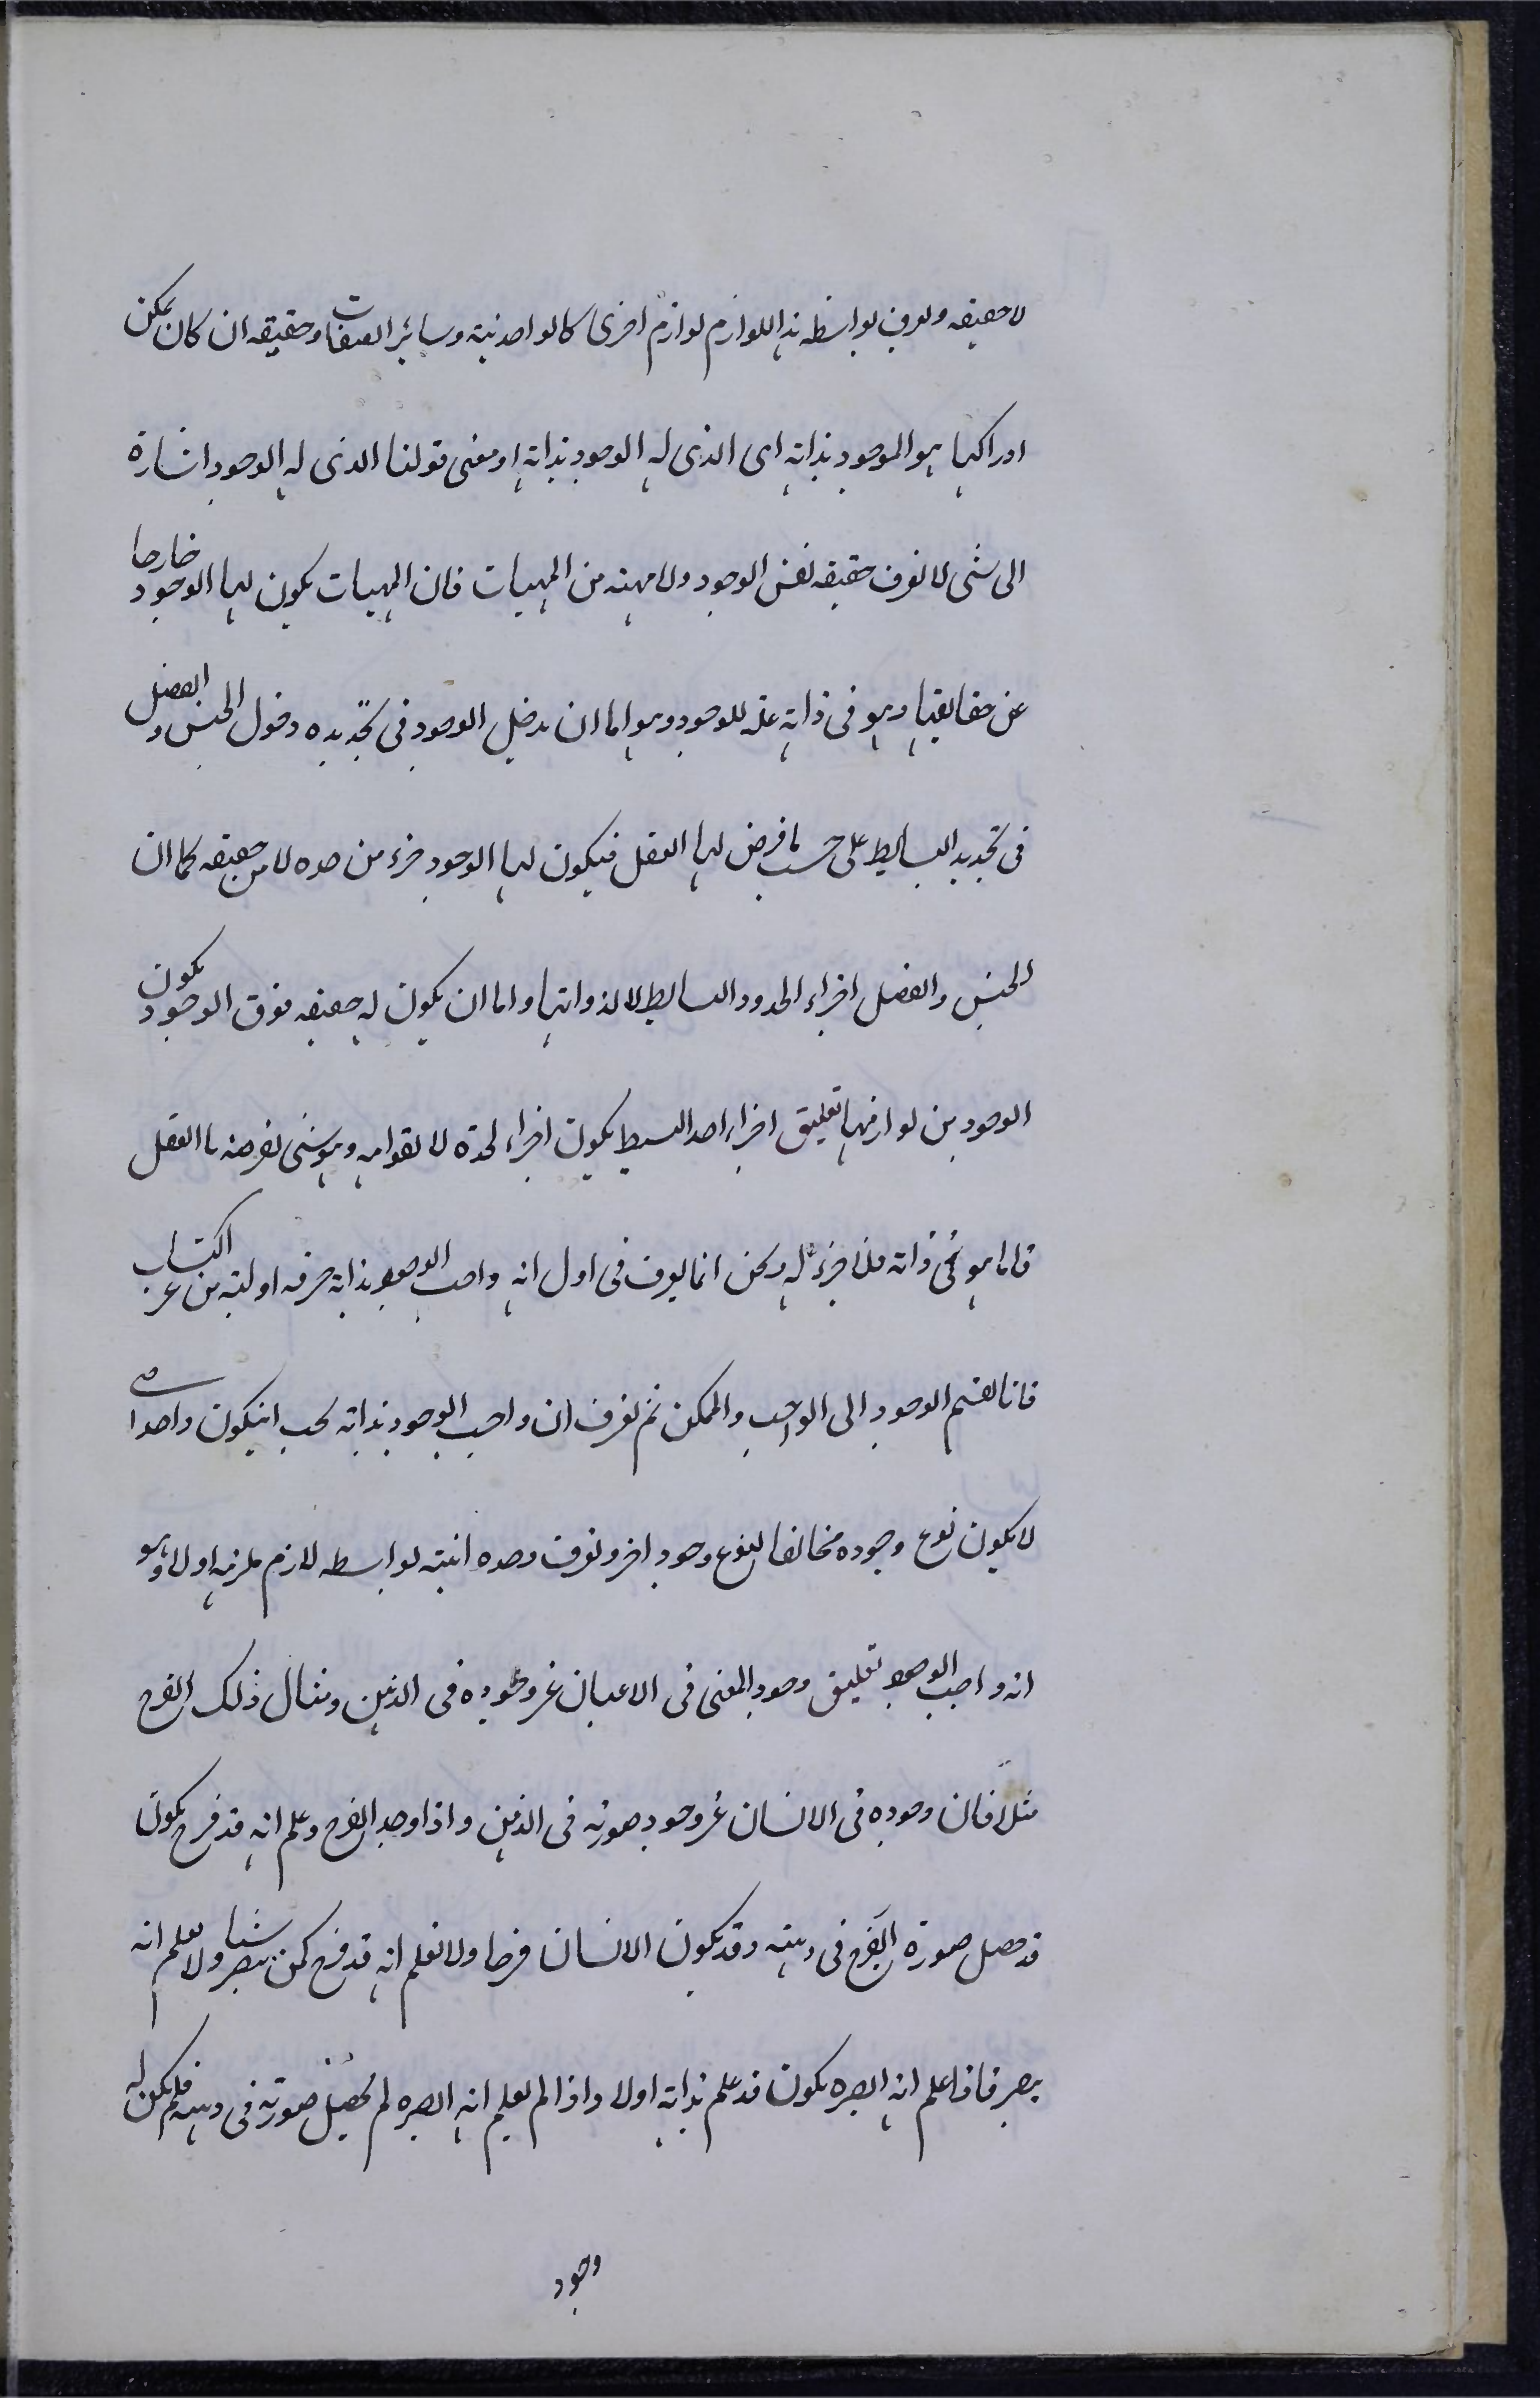 لا حقيقه ونعرف بواسطه هذا اللوازم لوازم اخرى كالواحدنية وسائر الصفات وحقيقه ان كان يمكن
ادراكها هو الموجود بذاته اى الذى له الوجود بذاته او معنى قولنا الذى له الوجود اشارة
الى شى لا نعرف حقيقه نفس الوجود ولا مهيته من المهيات فان المهيات يكون لها الوجود خارجا
عن حقايقها وهو فى ذاته علة للوجود وهو اما ان يدخل الوجود فى تحديده دخول الجنس والفصل
فى تحديد البسايط على حسب ما فرض لها العقل فيكون لها الوجود جزء من حده لا من حقيقه كما ان
الجنس والفصل اجزاء لحدود البسايط لا لذواتها واما ان يكون له حقيقه فوق الوجود يكون
الوجود من لوازمها تعليق اجزاء احد البسيط يكون اجزاء لحده لا لقوامه وهو شى نفرضه ما العقل
فاما هو فى ذاته فلا جزء له ونحن انما نعرف فى اول انه واجب الوجود بذاته معرفه اولية من غير اكتساب
فانا نقسم الوجود الى الواجب والممكن ثم نعرف ان واجب الوجود بذاته يجب انيكون واحدا حتى
لا يكون نوع وجوده مخالفا لنوع وجود اخر ونعرف وحده انيته بواسطه لازم يلزمه اولا وهو
انه واجب الوجود تعليق وجود المعنى فى الاعيان غير وجوده فى الذهن ومثال ذلك الفرح
مثلا فان وجوده فى الانسان غير وجود صورته فى الذهن واذا وجد الفرح وعلم انه قد فرح يكون
قد حصل صورة الفرح فى ذهنه وقد يكون الانسان فرحا ولا يعلم انه قد فرح كمن يبصر شيئا ولا يعلم انه
يبصر فاذا علم انه ابصره يكون قد علم ذاته اولا واذا لم يعلم انه ابصره لم يحصل صورته فى ذهنه فلم يكن له
وجود